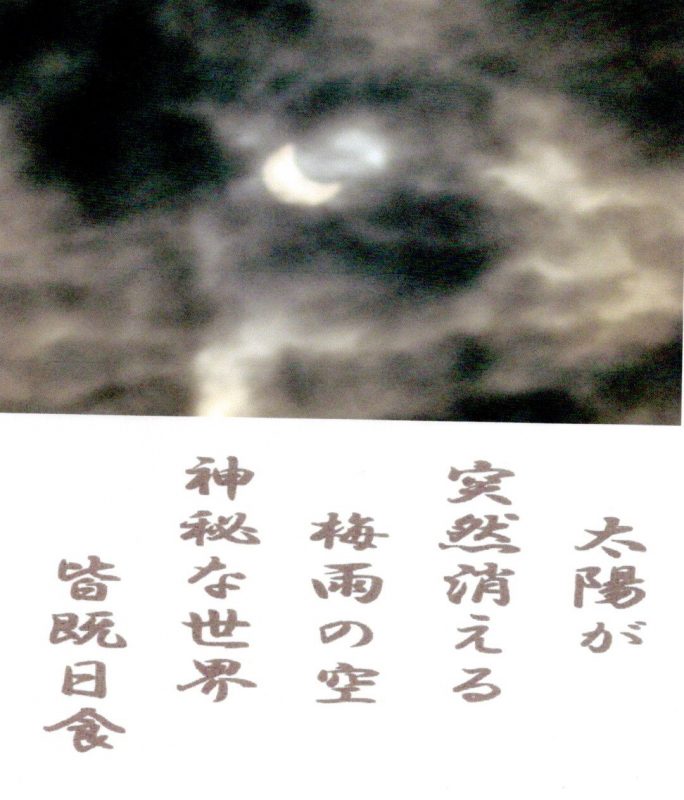 太陽が
突然消える
梅雨の空
神秘な世界
皆既日食